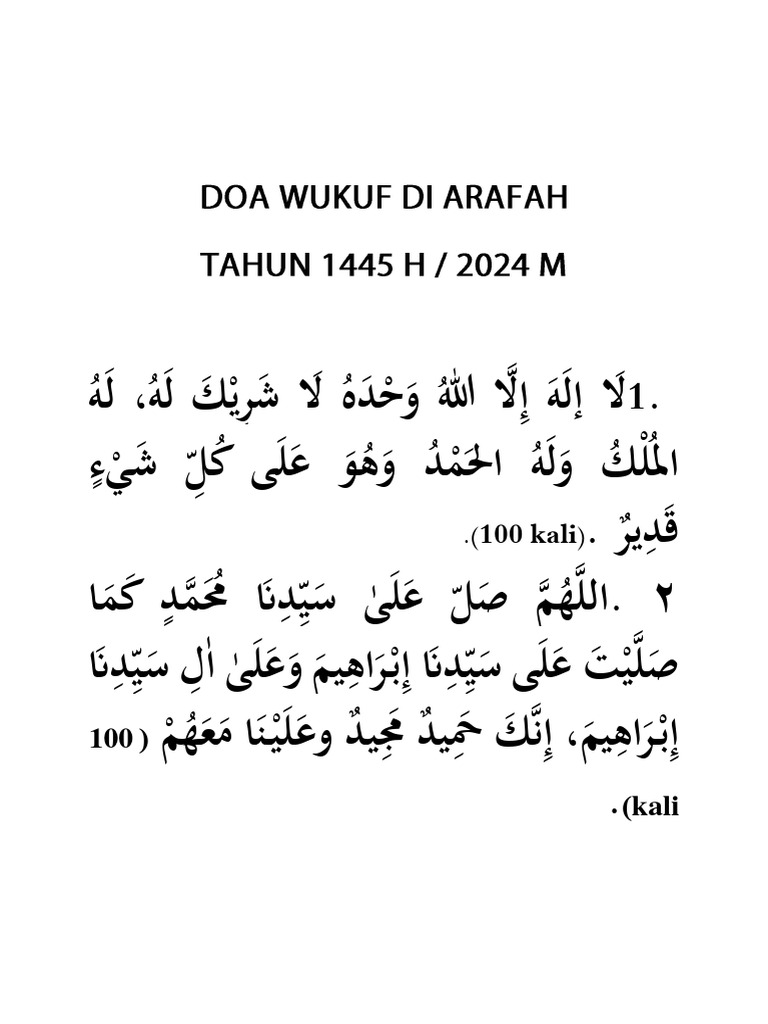 DOA WUKUF DI ARAFAH
TAHUN 1445 H / 2024 M
1. لَا إلَهَ إِلَّا اللهُ وَحْدَهُ لَا شَرِيْكَ لَهُ، لَهُ
المُلْكُ وَلَهُ الحَمْدُ وَهُوَ عَلَى كُلِّ شَيْءٍ
قَدِيرٌ . (100 kali).
٢ .اللَّهُمَّ صَلّ عَلَىٰ سَيِّدِنَا مُحَمَّدٍ كَمَا
صَلَّيْتَ عَلَى سَيِّدِنَا إِبْرَاهِيمَ وَعَلَىٰ اٰلِ سَيِّدِنَا
إِبْرَاهِيمَ، إِنَّكَ حَمِيدٌ مَجِيدٌ وعَلَيْنَا مَعَهُمْ (100
kali).